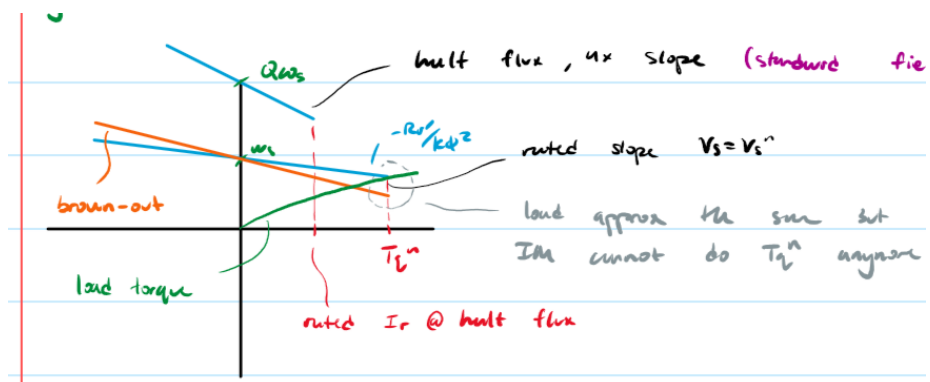 2ωs
half flux, 4x slope (standard fie
ωs
-Rr'/kΦ²
rated slope Vs = Vsⁿ
brown-out
load approx the same but
IM cannot do Tqⁿ anymore
Tqⁿ
load torque
rated Ir @ half flux